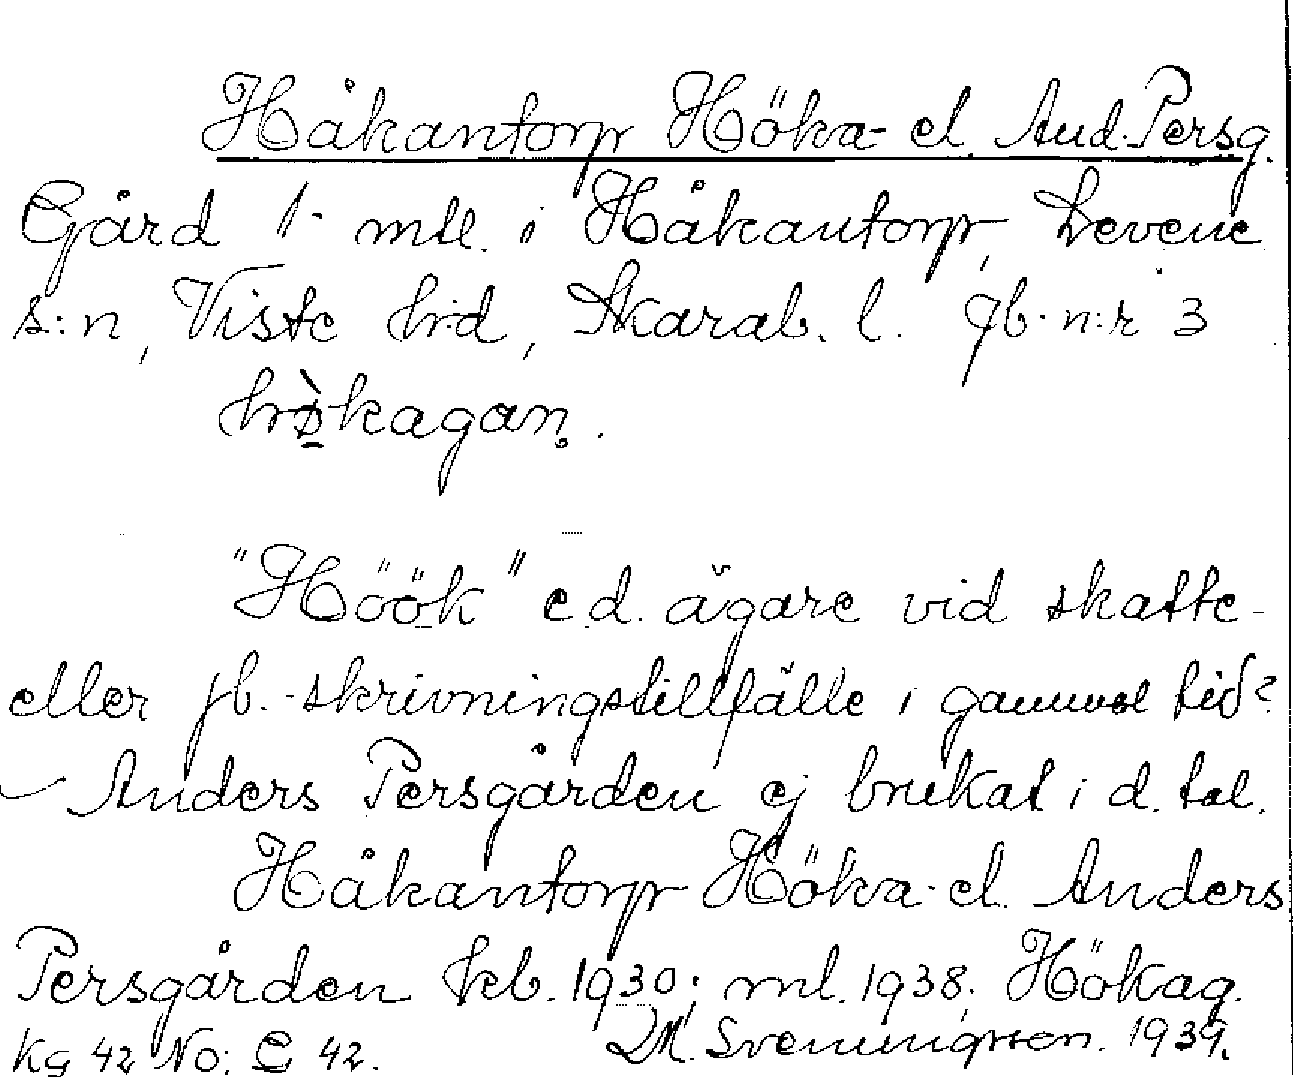 Håkantorp Höka- el. And. Persg.
Gård 1 mtl. i Håkantorp, Levene
s:n, Viste hrd, Skarab. l. Jb. n:r 3
"Höök" e.d. ägare vid skatte-
eller jb.-skrivningstillfälle i gammal tid?
Anders Persgården ej brukat i d. tal.
Håkantorp Höka- el. Anders
Persgården kb. 1930; ml. 1938. Hökag.
Kg 42 No: C 42. M. Sveningsson. 1939.